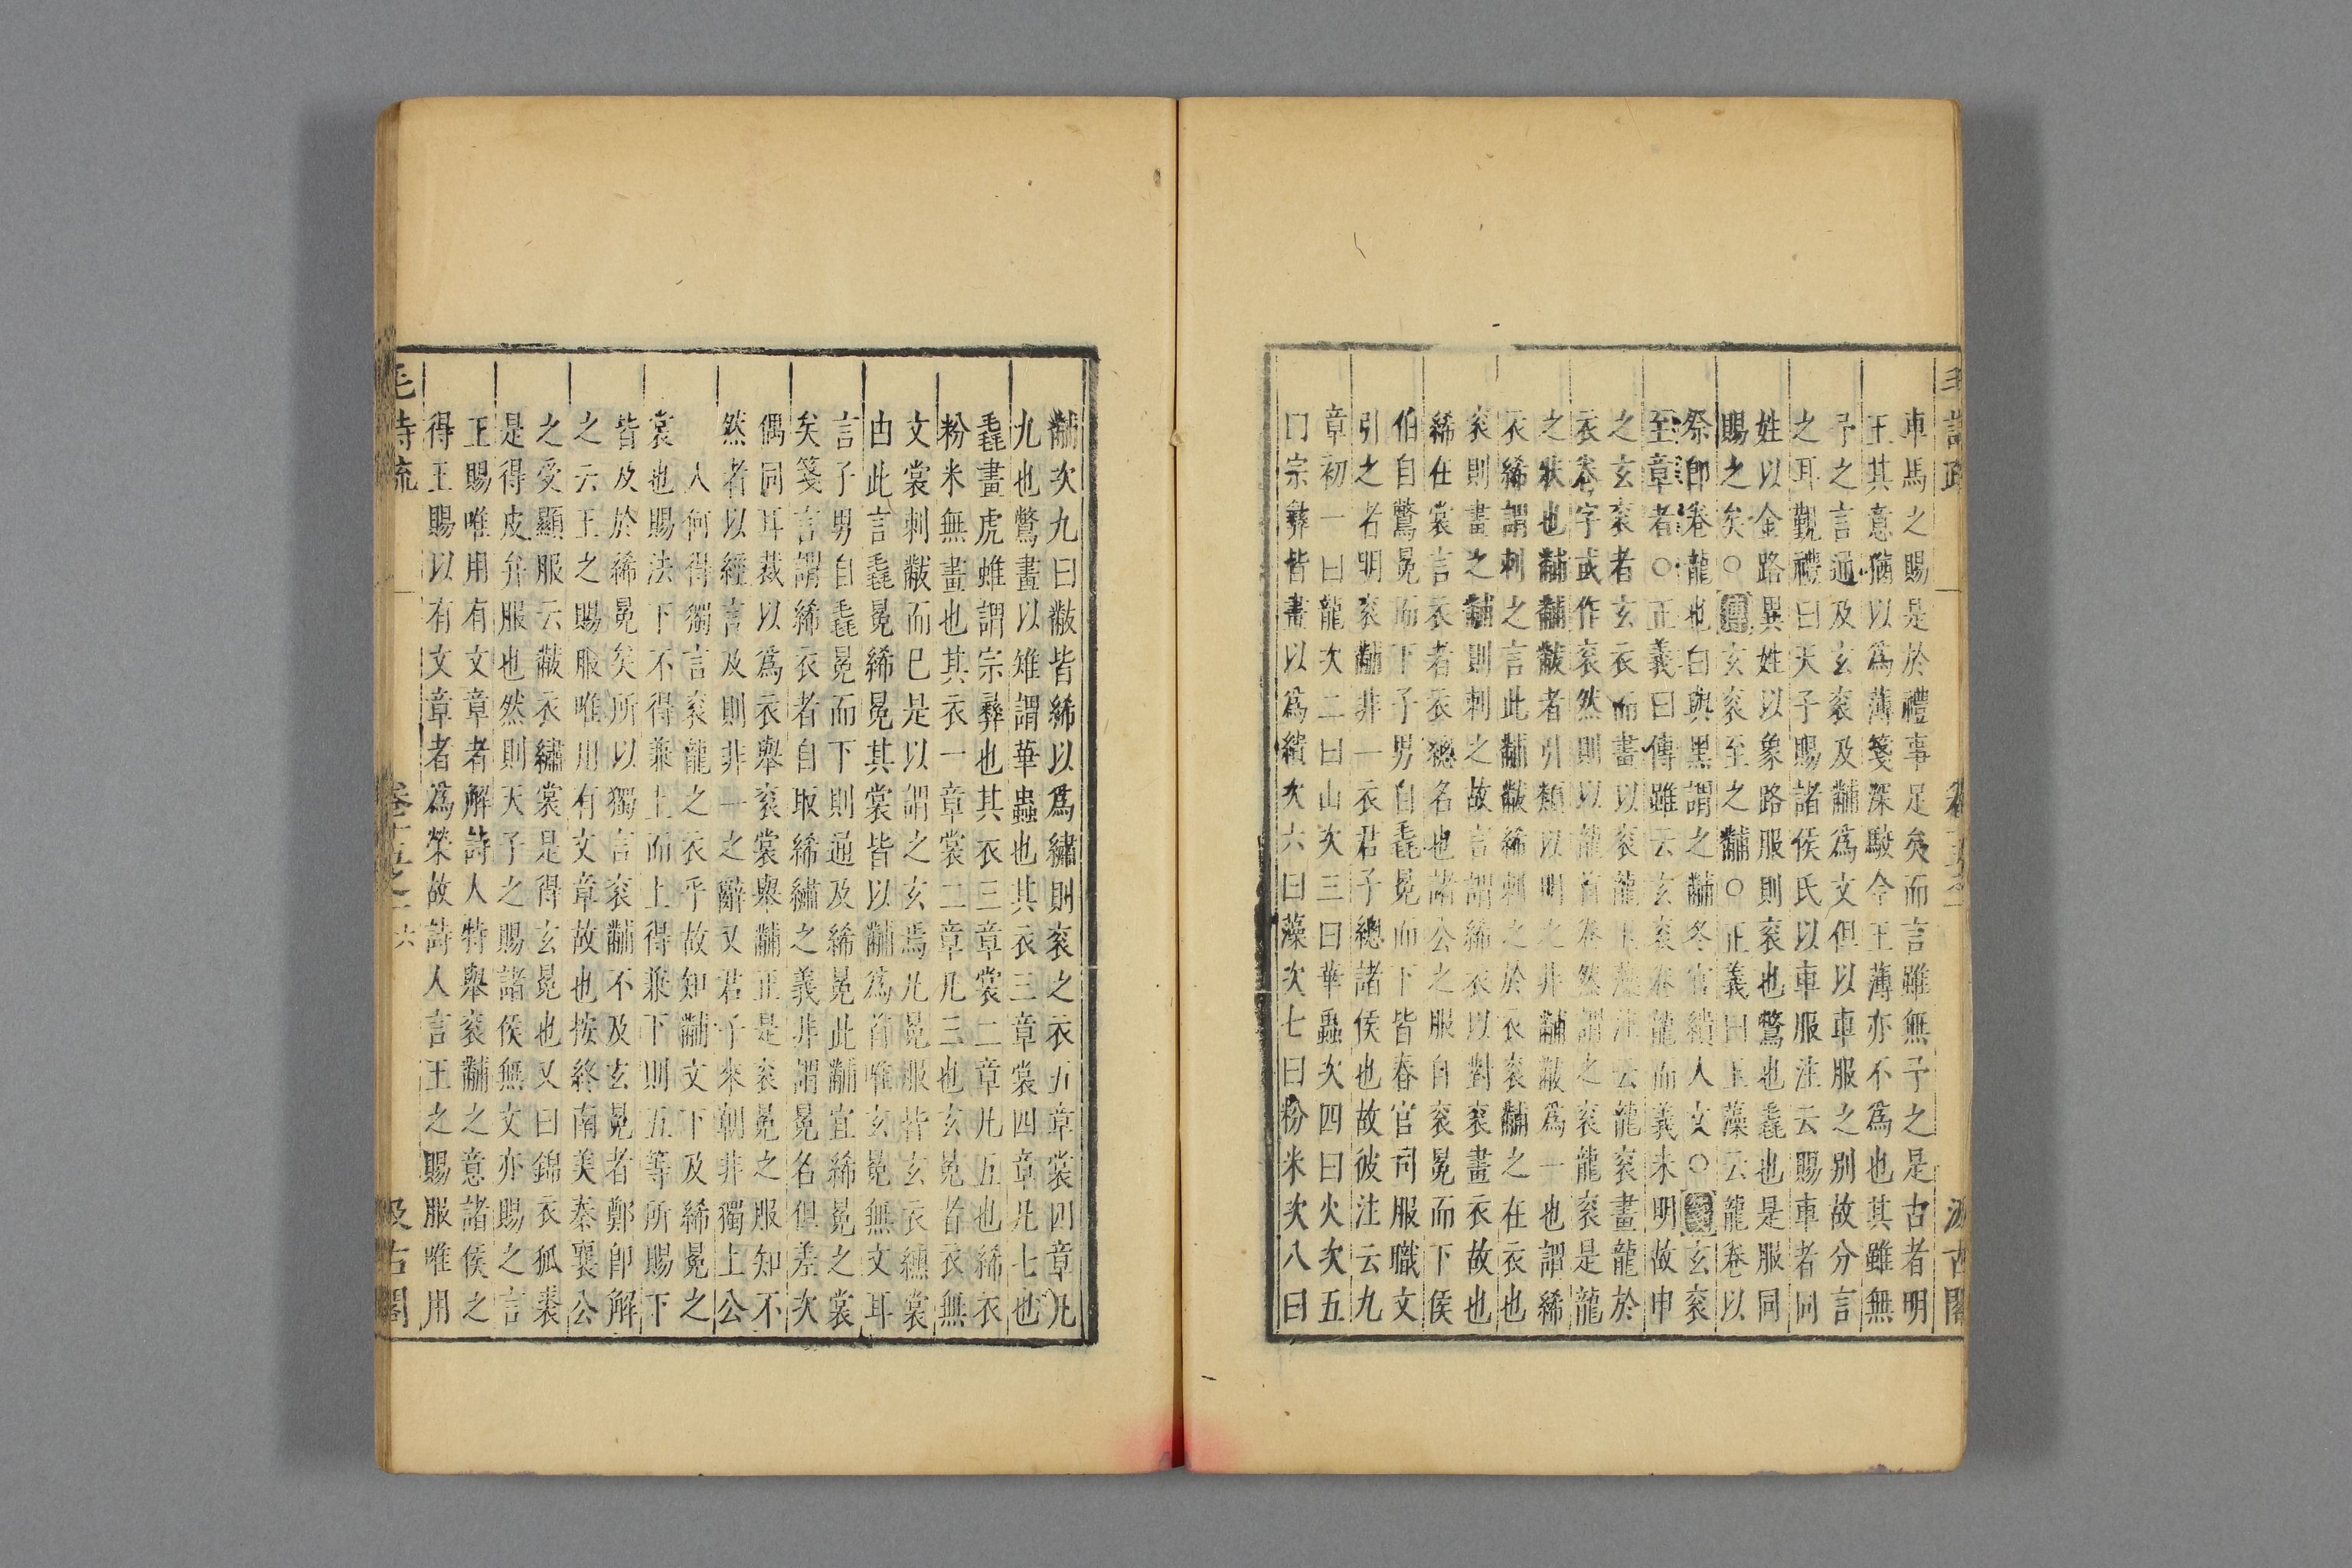 車馬之賜是於禮事足矣而言雖無予之是古者明
王其意猶以為薄箋深駮今王薄亦不為也其雖無
予之言通及玄衮及黼為文但以車服之別故分言
之耳覲禮曰天子賜諸侯氏以車服注云賜車者同
姓以金路異姓以象路服則衮也驚也毳也是服同
賜之矣○玄衮至之黼○正義曰玉藻云龍卷以
祭即卷龍也白與黑謂之黼冬官繢人文○玄衮
至章者○正義曰傳雖云玄衮卷龍而義未明故申
之玄衮者玄衣而畫以衮龍云龍衮畫龍於
衣卷字或作衮然則以龍首卷然謂之衮龍衮是龍
之狀也黼黼黻者引類以明之非黼黻為一也謂絺
衣絺謂刺之言此黼黻絺刺之於衣衮黼之在衣也
衮則畫之黼則刺之故言謂絺衣以對衮畫衣故也
絺在裳言衣者衣總名也諸公之服自衮冕而下侯
伯自驚冕而下子男自毳冕而下皆春官司服職文
引之者明衮黼非一衣君子總諸侯也故彼注云九
章初一曰龍次二曰山次三曰華蟲次四曰火次五
曰宗彝皆畫以為繢次六曰藻次七曰粉米次八曰
黼次九曰黻皆絺以為繡則衮之衣五章裳四章凡
九也驚畫以雉謂華蟲也其衣三章裳四章凡七也
毳畫虎蜼謂宗彝也其衣三章裳二章凡五也絺衣
粉米無畫也其衣一章裳二章凡三也玄冕者衣無
文裳刺黻而已是以謂之玄焉凡冕服皆玄衣纁裳
由此言毳冕絺冕其裳皆以黼為首唯玄冕無文耳
言子男自毳冕而下則通及絺冕此黼宜絺冕之裳
矣箋言謂絺衣者自取絺繡之義非謂冕名但差次
偶同耳裁以為衣舉衮裳舉黼正是衮冕之服知不
然者以經言及則非一之辭又君子來朝非獨上公
人何得獨言衮龍之衣乎故知黼文下及絺冕之
裳也賜法下不得兼上而上得兼下則五等所賜下
皆及於絺冕矣所以獨言衮黼不及玄冕者鄭即解
之云王之賜服唯用有文章故也按終南美秦襄公
之受顯服云黻衣繡裳是得玄冕也又曰錦衣狐裘
是得皮弁服也然則天子之賜諸侯無文亦賜之言
王賜唯用有文章者解詩人特舉衮黼之意諸侯之
得王賜以有文章者為榮故詩人言王之賜服唯用
毛詩疏
卷十五之一
六
汲古閣